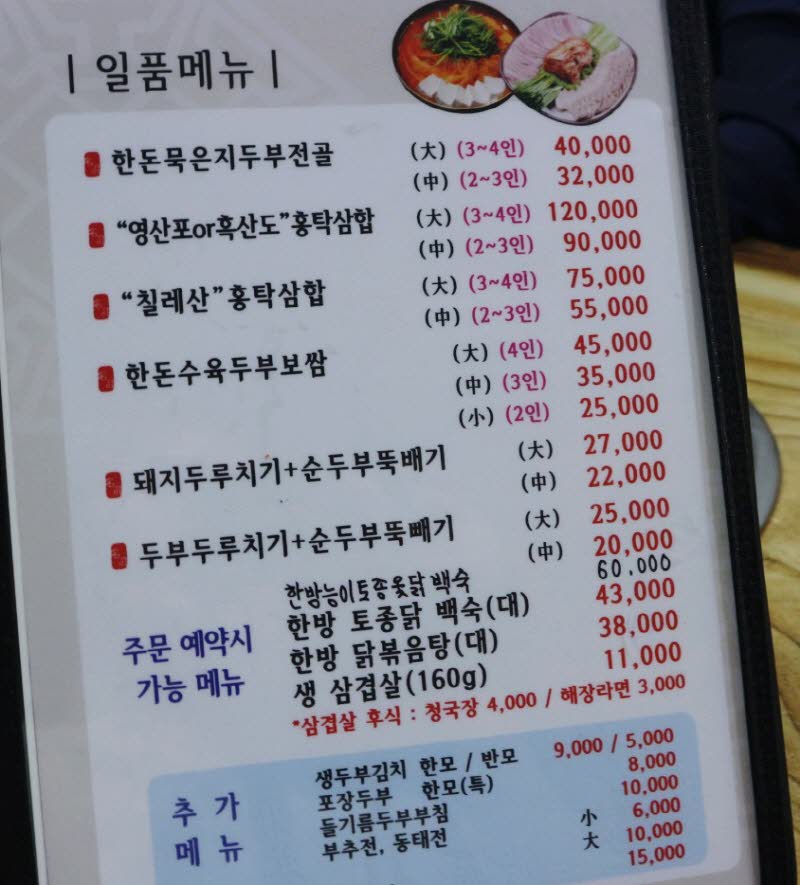 | 일품메뉴 |
한돈묵은지두부전골 (大) (3~4인) 40,000
(中) (2~3인) 32,000
“영산포or흑산도”홍탁삼합 (大) (3~4인) 120,000
(中) (2~3인) 90,000
“칠레산”홍탁삼합 (大) (3~4인) 75,000
(中) (2~3인) 55,000
한돈수육두부보쌈 (大) (4인) 45,000
(中) (3인) 35,000
(小) (2인) 25,000
돼지두루치기+순두부뚝배기 (大) 27,000
(中) 22,000
두부두루치기+순두부뚝빼기 (大) 25,000
(中) 20,000
주문 예약시
가능 메뉴
한방능이토종옻닭 백숙 60.000
한방 토종닭 백숙(대) 43,000
한방 닭볶음탕(대) 38,000
생 삼겹살(160g) 11,000
*삼겹살 후식 : 청국장 4,000 / 해장라면 3,000
추 가
메 뉴
생두부김치 한모 / 반모 9,000 / 5,000
포장두부 한모(특) 8,000
들기름두부부침 10,000
부추전, 동태전 小 6,000
大 10,000
15,000